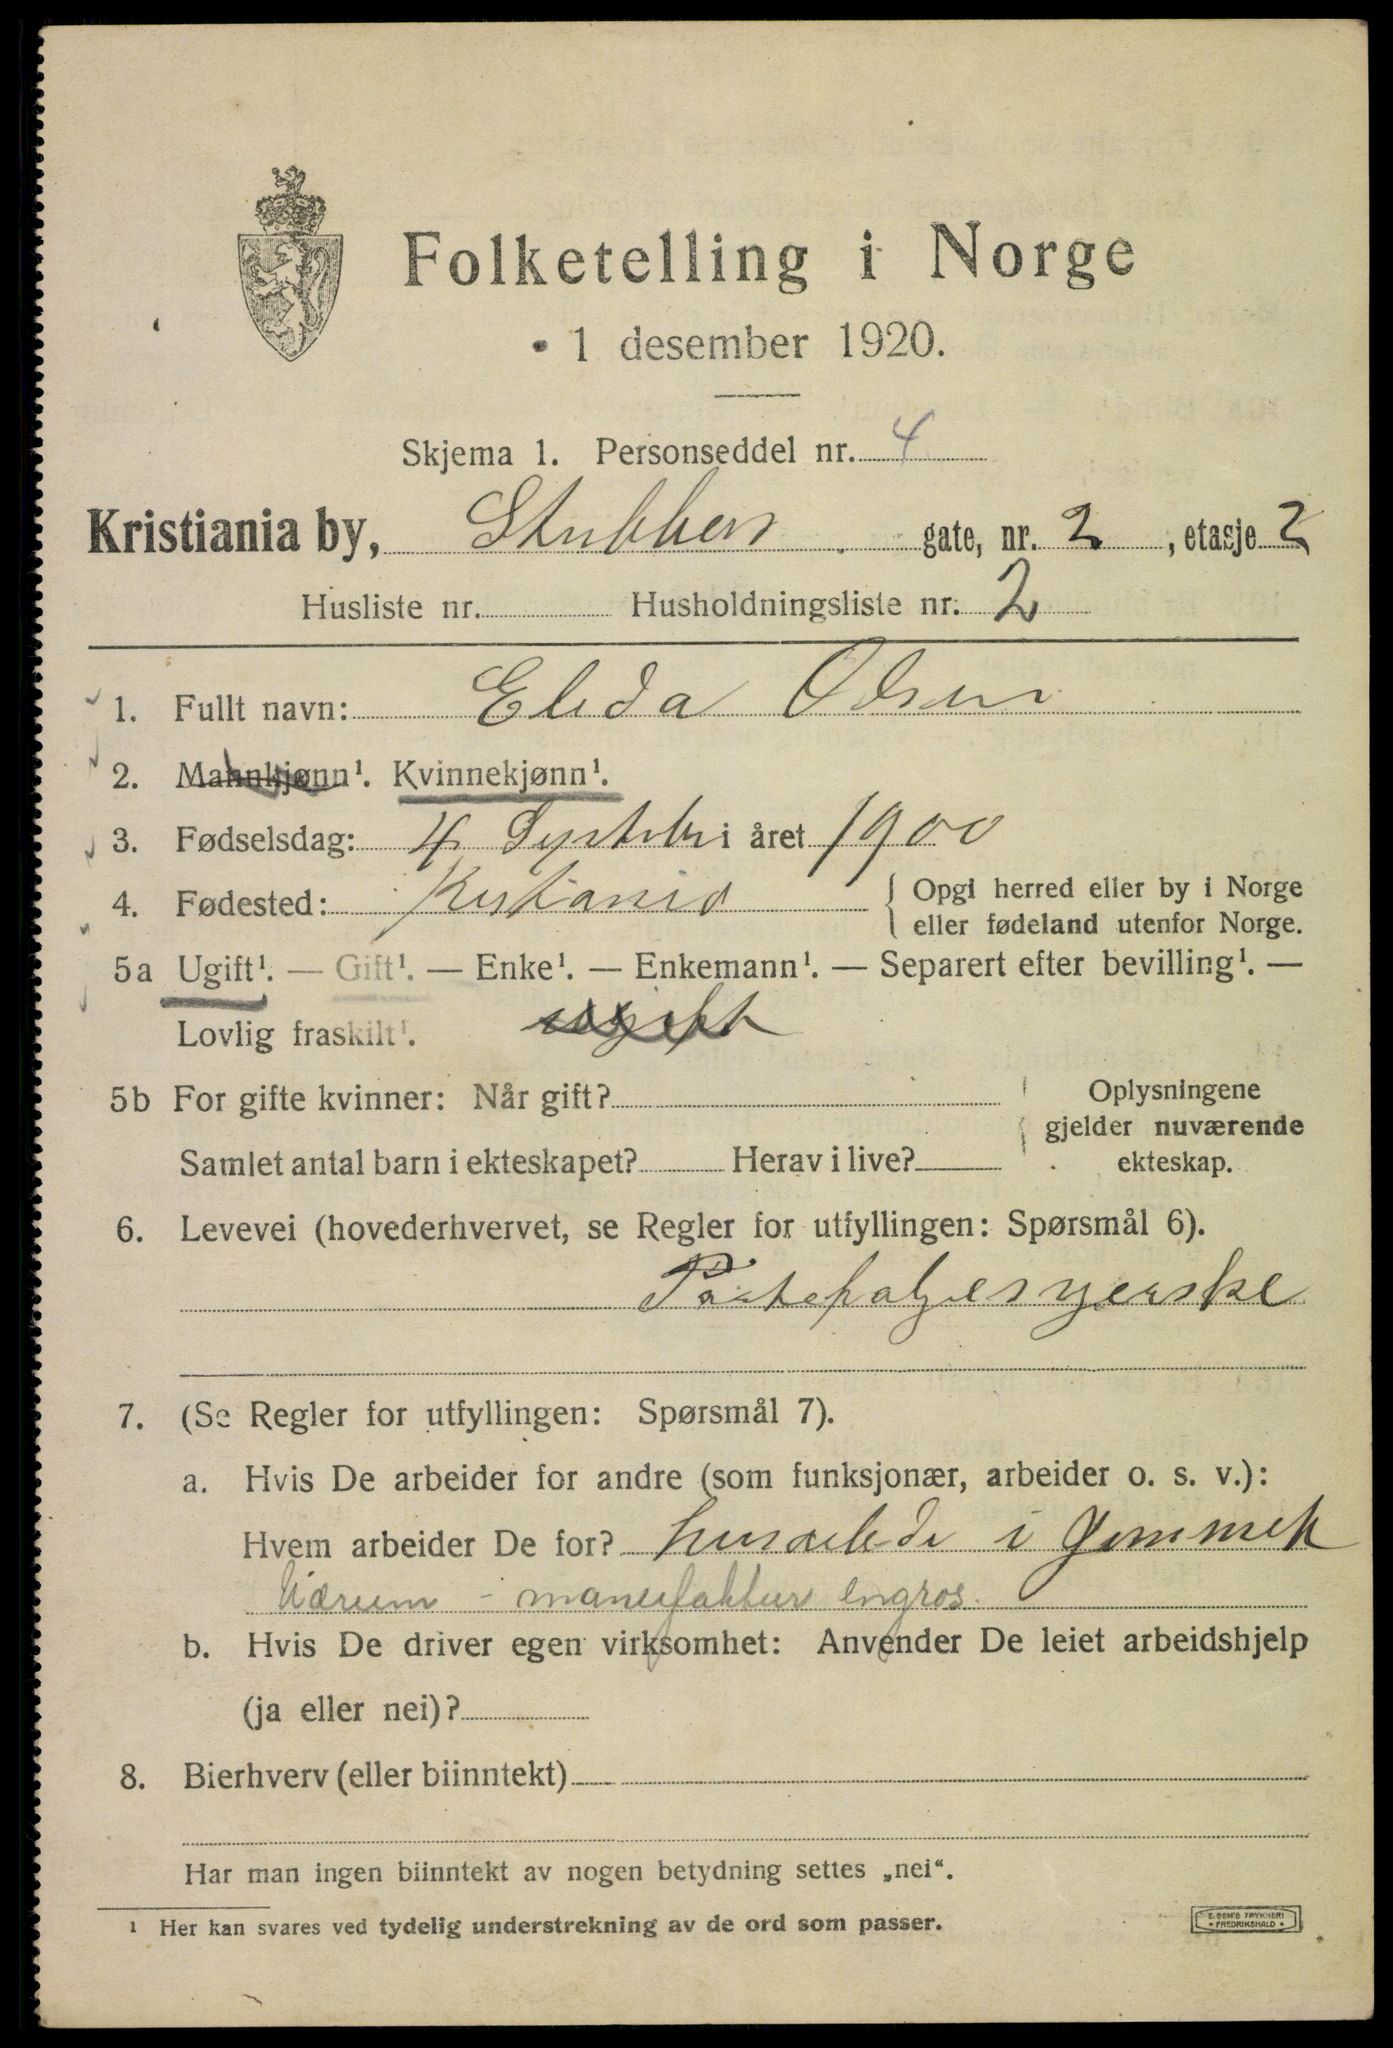 Folketelling i Norge
1 desember 1920.
Skjema 1. Personseddel nr. 4
Kristiania by, Stubbers gate, nr. 2, etasje 2
Husliste nr. Husholdningsliste nr. 2
1. Fullt navn: Elida Olsen
2. Mannkjønn¹. Kvinnekjønn¹.
3. Fødselsdag: 4 i året 1900
4. Fødested: Kristiania { Opgi herred eller by i Norge
eller fødeland utenfor Norge.
5a Ugift¹. — Gift¹. — Enke¹. — Enkemann¹. — Separert efter bevilling¹. —
Lovlig fraskilt¹. ugift
5b For gifte kvinner: Når gift? Oplysningene
gjelder nuværende
Samlet antal barn i ekteskapet? Herav i live? ekteskap.
6. Levevei (hovederhvervet, se Regler for utfyllingen: Spørsmål 6).
7. (Se Regler for utfyllingen: Spørsmål 7).
a. Hvis De arbeider for andre (som funksjonær, arbeider o. s. v.):
Hvem arbeider De for? i
manufaktur engros.
b. Hvis De driver egen virksomhet: Anvender De leiet arbeidshjelp
(ja eller nei)?
8. Bierhverv (eller biinntekt)
Har man ingen biinntekt av nogen betydning settes „nei“.
¹ Her kan svares ved tydelig understrekning av de ord som passer.
E. SEM'S TRYKKERI
• FREDRIKSHALD •